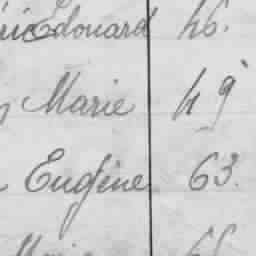 Edouard 46.
Marie 49
Eugène 63.